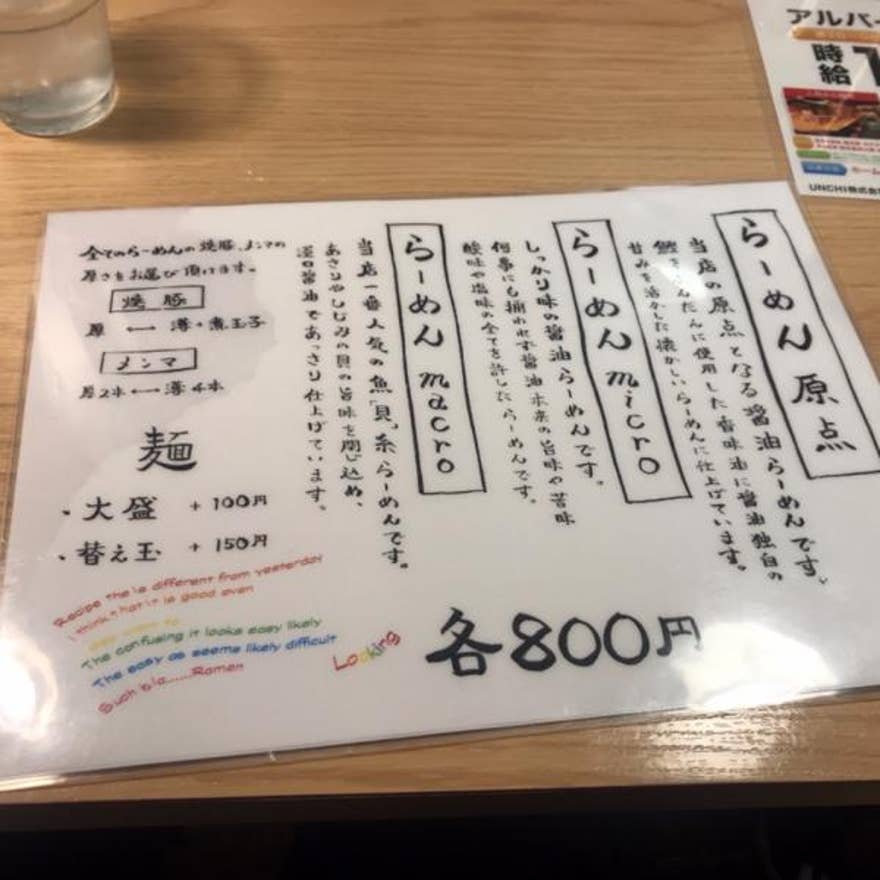 らーめん 原点
当店の原点となる醤油らーめんです。
鰹をふんだんに使用した香味油に醤油独自の
甘みを活かした懐かしいらーめんに仕上げています。
らーめん micro
しっかり味の醤油らーめんです。
何事にも捕われず醤油本来の旨味や苦味
酸味や塩味の全てを許したらーめんです。
らーめん macro
当店一番人気の魚「貝」系らーめんです。
あさりやしじみの貝の旨味を閉じ込め、
淡口醤油であっさり仕上げています。
全てのらーめんの焼豚、メンマの
厚さをお選び頂けます。
焼豚
厚 ←→ 薄+煮玉子
メンマ
厚2本 ←→ 薄4本
麺
・大盛 +100円
・替え玉 +150円
Recipe the is different from yesterday
I think that it is good even
The confusing it looks easy likely
The easy as seeme likely difficult
Such bla......Ramen
Looking
各800円
アルバ
時給 1
ホーム
UNCHI株式会